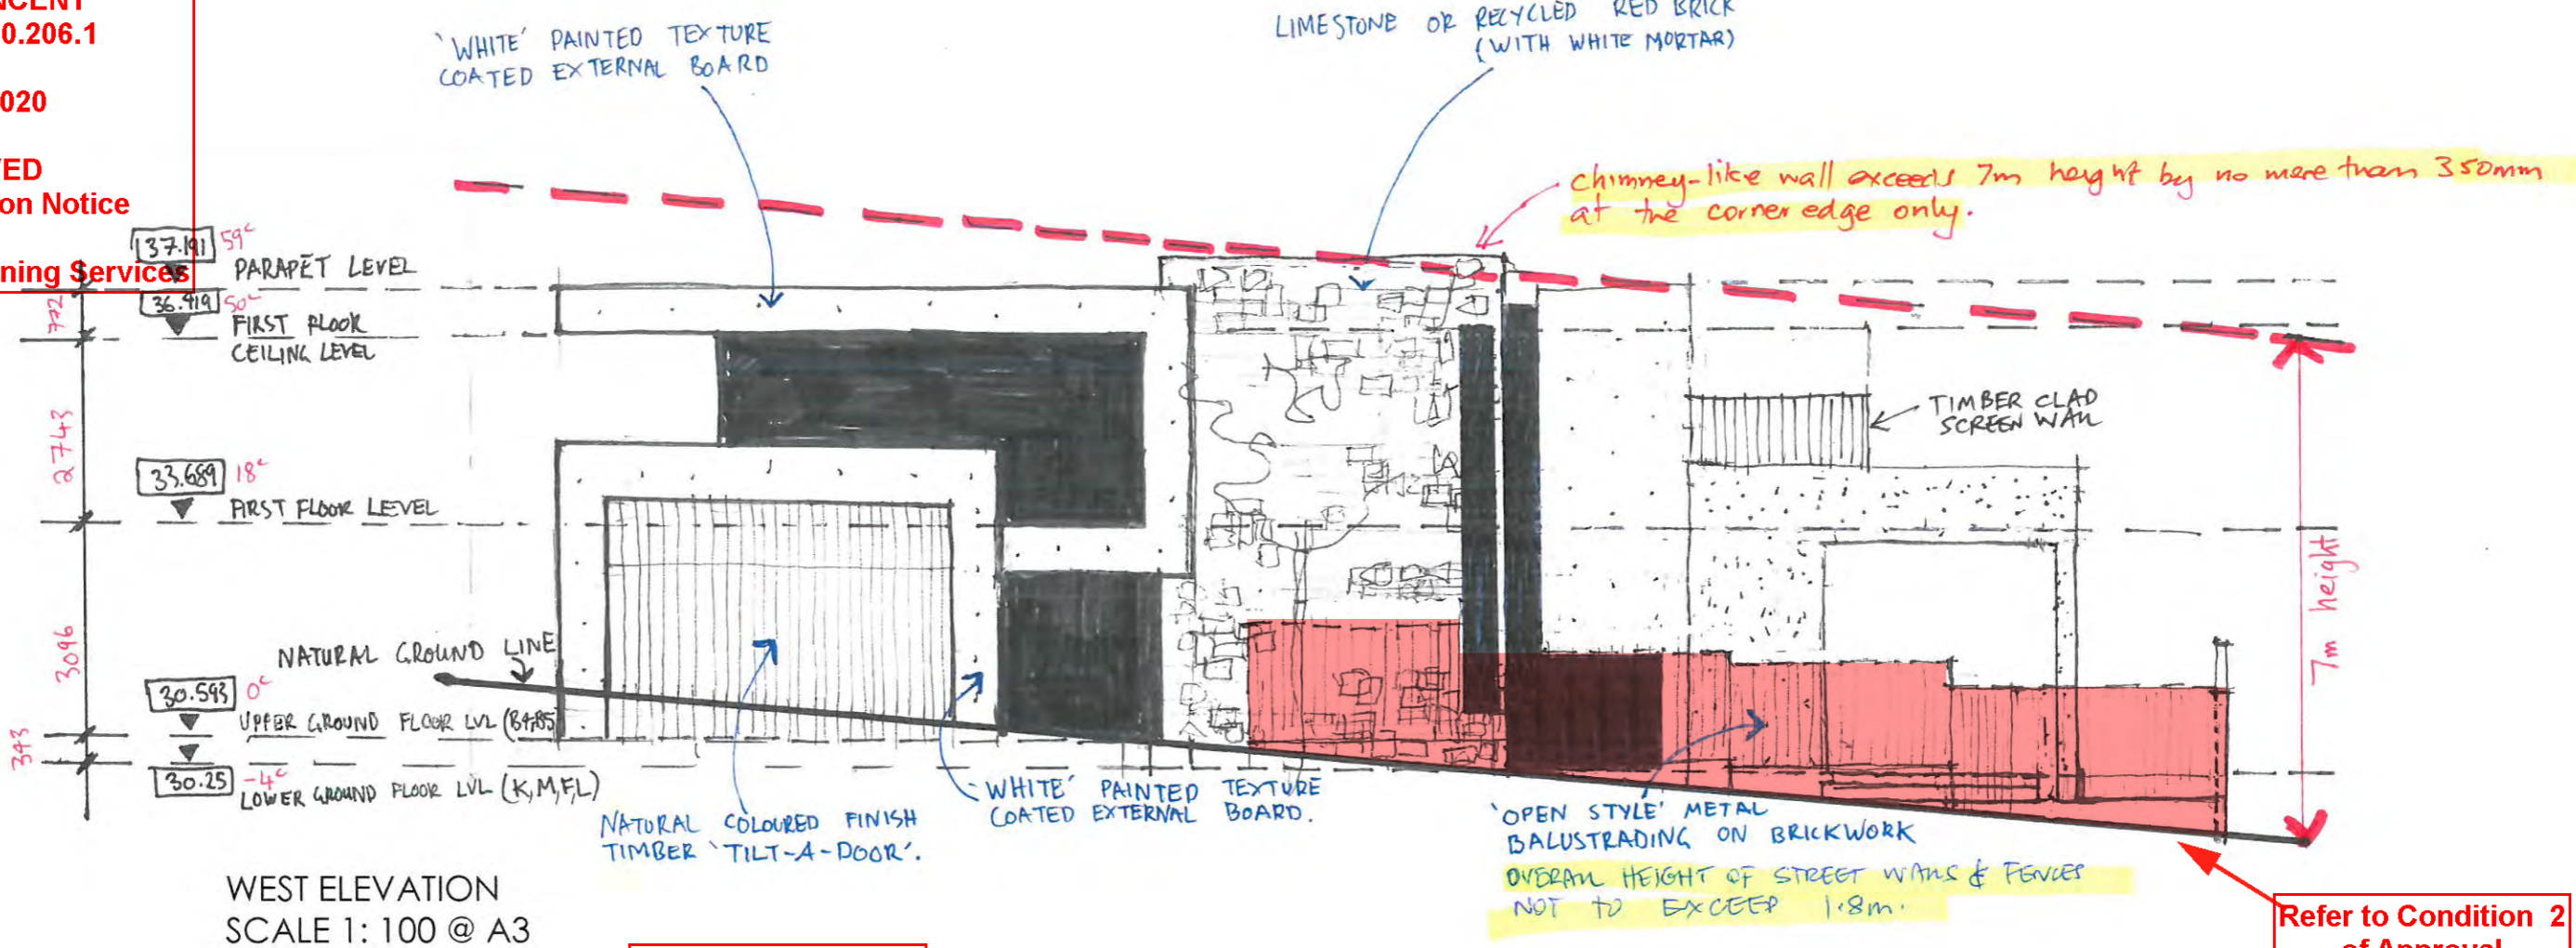 0.206.1
020
on Notice
ning Services
'WHITE' PAINTED TEXTURE
COATED EXTERNAL BOARD
LIMESTONE OR RECYCLED RED BRICK
(WITH WHITE MORTAR)
chimney-like wall exceeds 7m height by no more than 350mm
at the corner edge only.
37.191 59c
PARAPET LEVEL
36.419 50c
FIRST FLOOR
CEILING LEVEL
772
2743
33.689 18c
FIRST FLOOR LEVEL
3096
NATURAL GROUND LINE
30.593 0c
UPPER GROUND FLOOR LVL (B4,B5)
343
30.25 -4c
LOWER GROUND FLOOR LVL (K,M,F,L)
TIMBER CLAD
SCREEN WALL
7m height
NATURAL COLOURED FINISH
TIMBER 'TILT-A-DOOR'.
'WHITE' PAINTED TEXTURE
COATED EXTERNAL BOARD.
'OPEN STYLE' METAL
BALUSTRADING ON BRICKWORK
OVERALL HEIGHT OF STREET WALLS & FENCES
NOT TO EXCEED 1.8m.
WEST ELEVATION
SCALE 1: 100 @ A3
Refer to Condition 2
of Approval